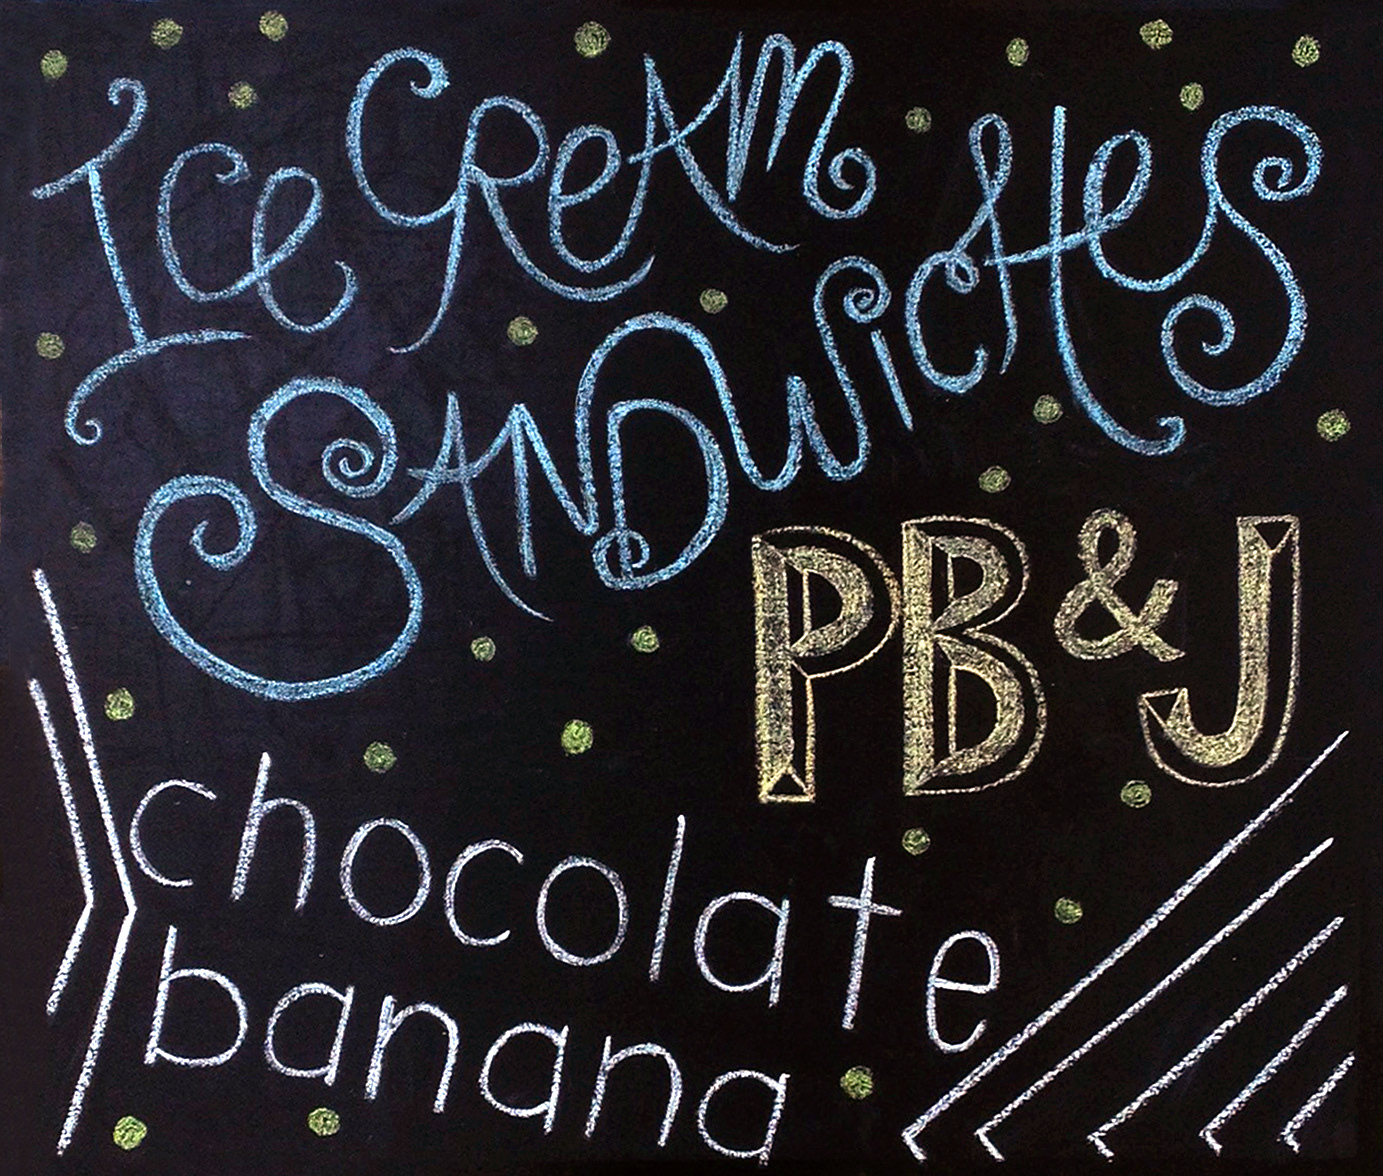 ICe CReAM
SANDWiCHeS
PB&J
chocolate
banana